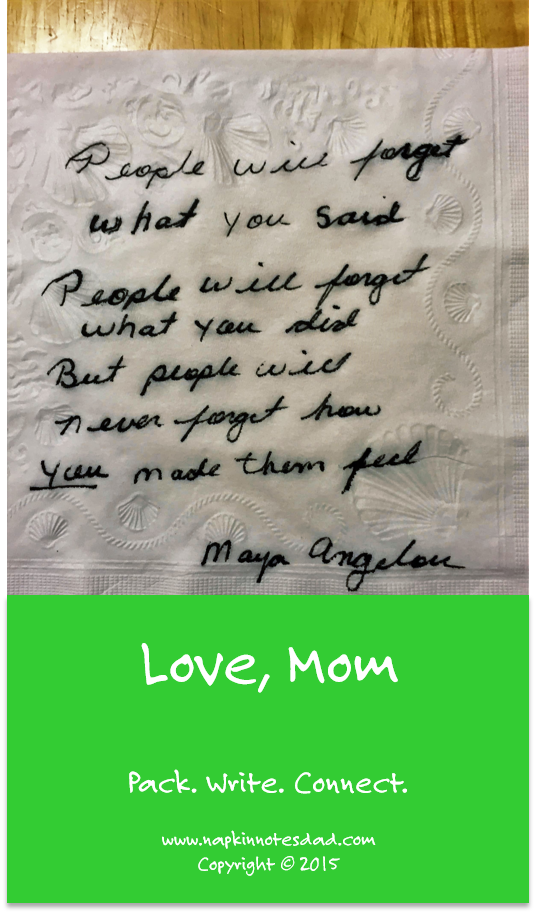 People will forget
what you said
People will forget
what you did
But people will
never forget how
you made them feel
Maya Angelou
Love, Mom
Pack. Write. Connect.
www.napkinnotesdad.com
Copyright © 2015